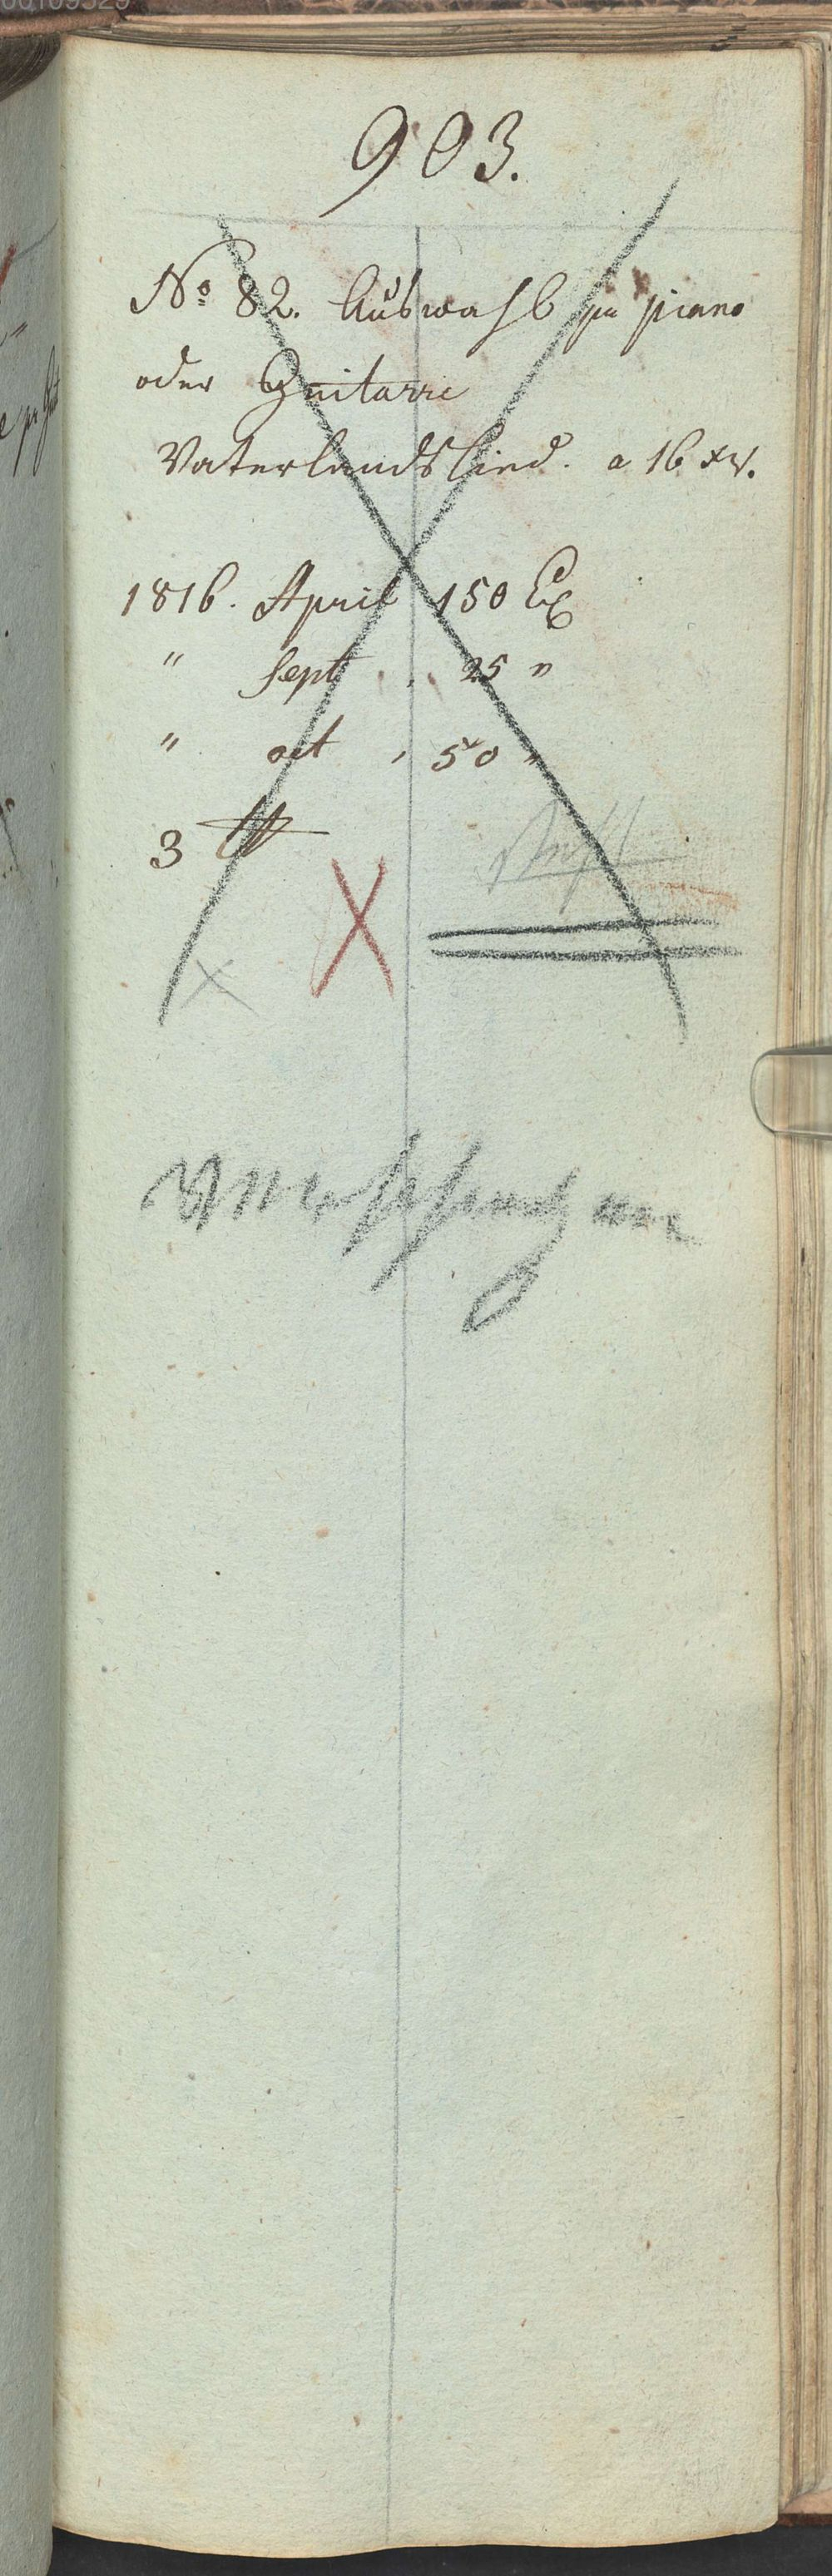 903.
No 82. Auswahl pr piano
oder Guitarre
Vaterlandslied. a 16 xr.
1816. April 150 Ex
" Sept , 25 "
" oct , 50 "
3